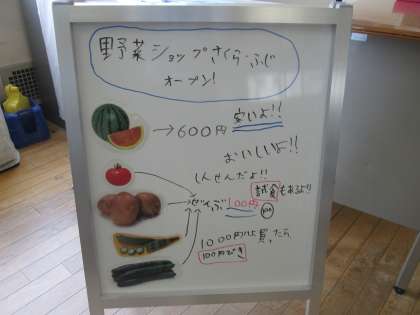 野菜ショップさくら・ふじ
オープン!
→600円 安いよ!!
おいしいよ!!
しんせんだよ!!
試食もあるよ
ぜんぶ100円
1000円以上買ったら
100円びき